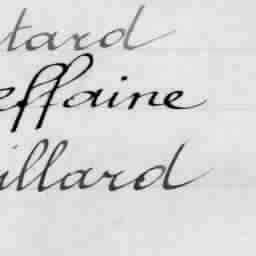 tard
effaine
illard